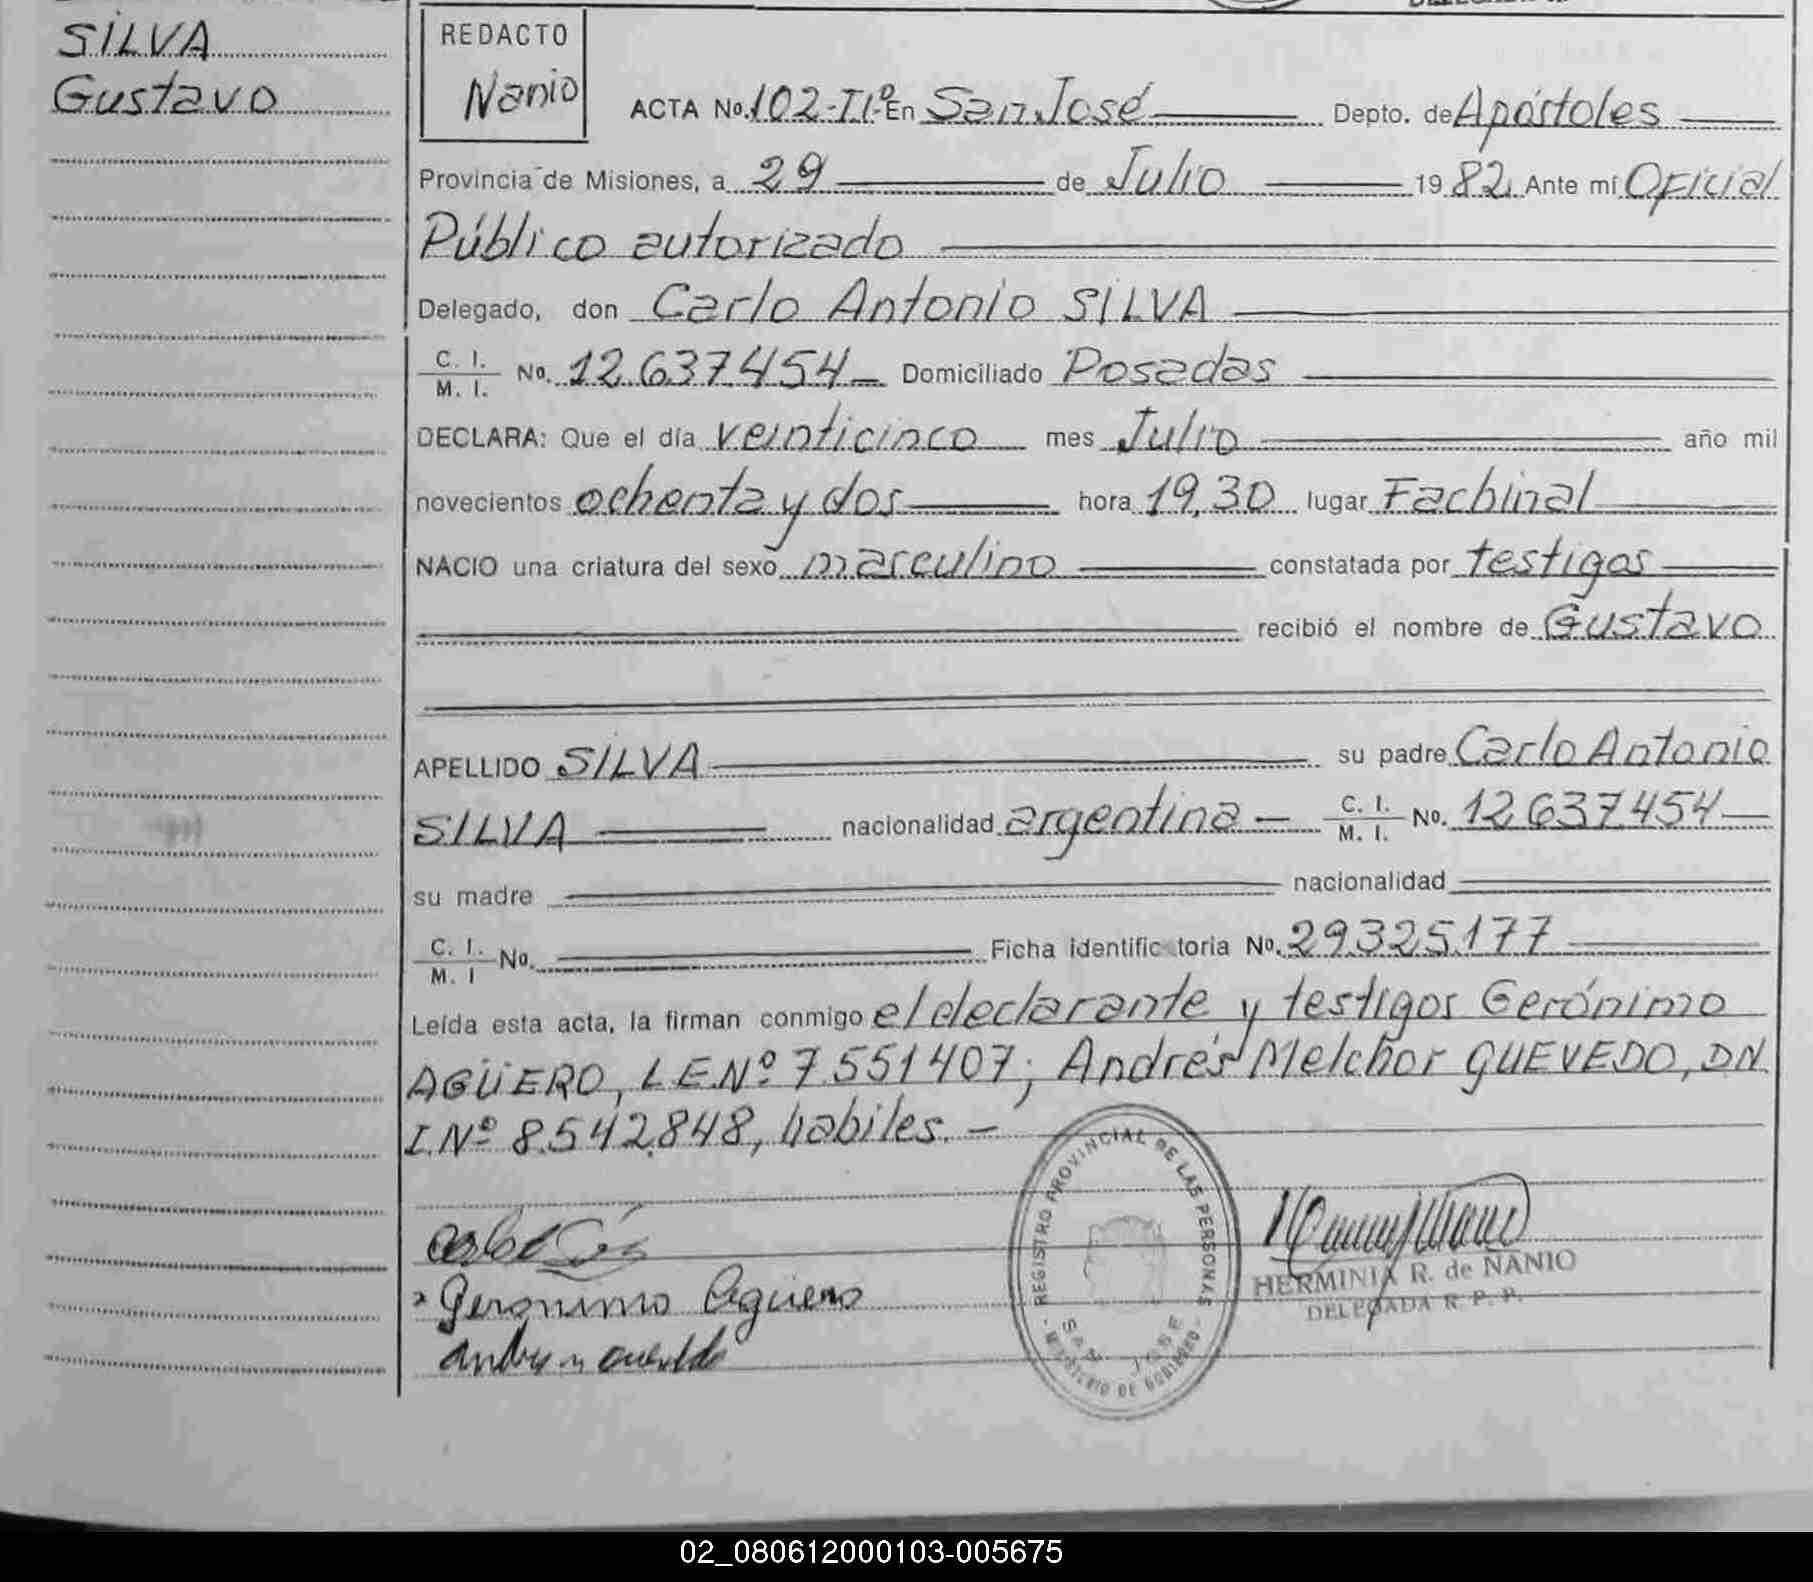 SILVA
Gustavo
REDACTO
Nanio
ACTA No. 102-Tº I En San José Depto. de Apóstoles
Provincia de Misiones, a 29 de Julio 1982 Ante mí Oficial
Público autorizado
Delegado, don Carlo Antonio SILVA
C. I. / M. I. No. 12.637.454 Domiciliado Posadas
DECLARA: Que el día veinticinco mes Julio año mil
novecientos ochenta y dos hora 19,30 lugar Fachinal
NACIO una criatura del sexo masculino constatada por testigos
recibió el nombre de Gustavo
APELLIDO SILVA su padre Carlo Antonio
SILVA nacionalidad argentina — C. I. / M. I. No. 12.637.454
su madre nacionalidad
C. I. / M. I No. Ficha identific toria No. 29.325.177
Leída esta acta, la firman conmigo el declarante y testigos Gerónimo
AGÜERO, L.E.Nº 7.551407; Andrés Melchor QUEVEDO, DN.
I.Nº 8.542.848, habiles. —
Geronimo Aguero
REGISTRO PROVINCIAL DE LAS PERSONAS
SAN JOSE
MINISTERIO DE GOBIERNO
HERMINIA R. de ÑANIO
DELEGADA R. P. P.
02_080612000103-005675